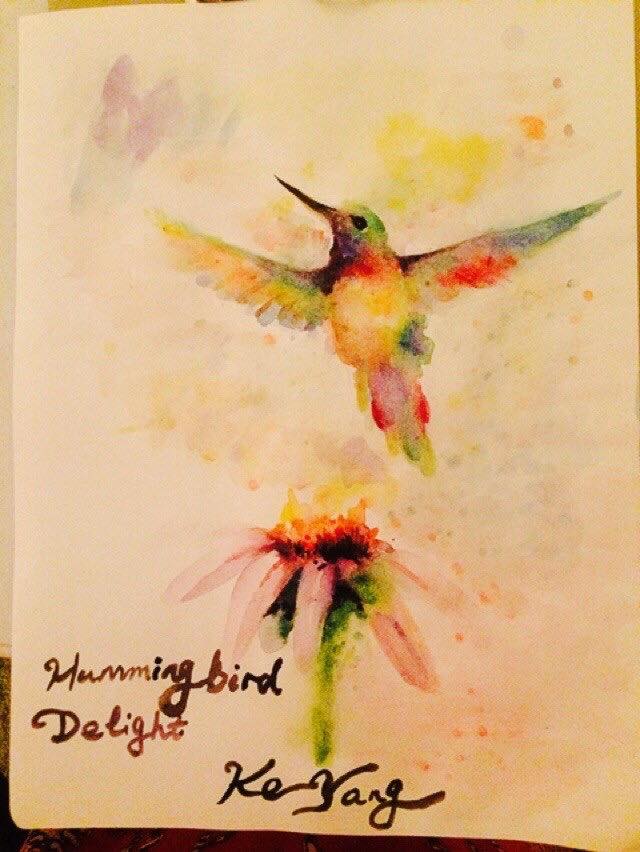 Humming bird
Delight
Ke Yang